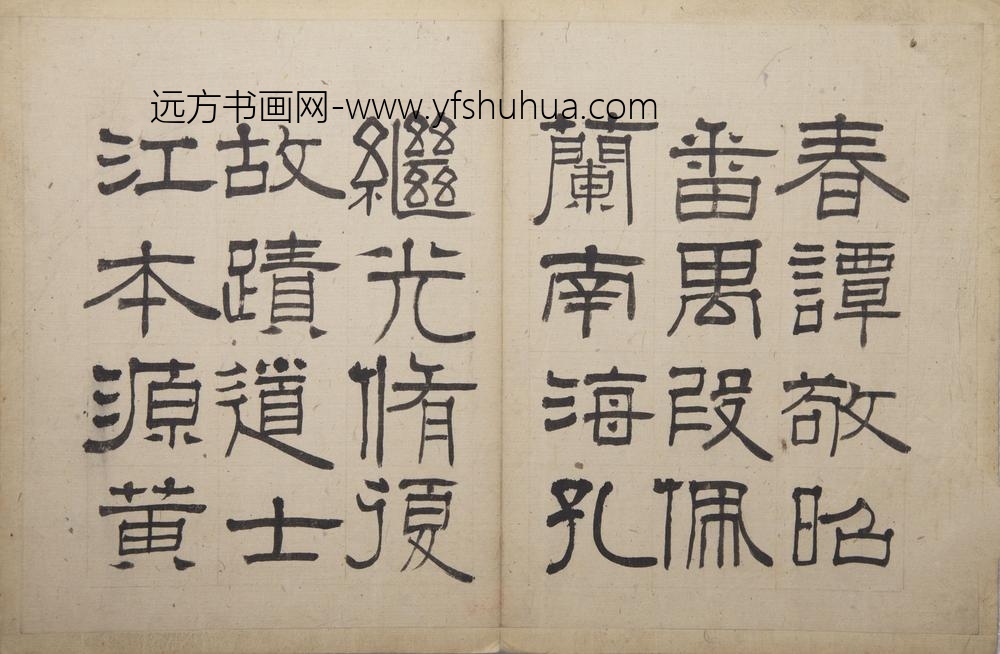 远方书画网-www.yfshuhua.com
春譚敬昭
番禺段佩
蘭南海孔
繼光脩復
故蹟道士
江本源黃